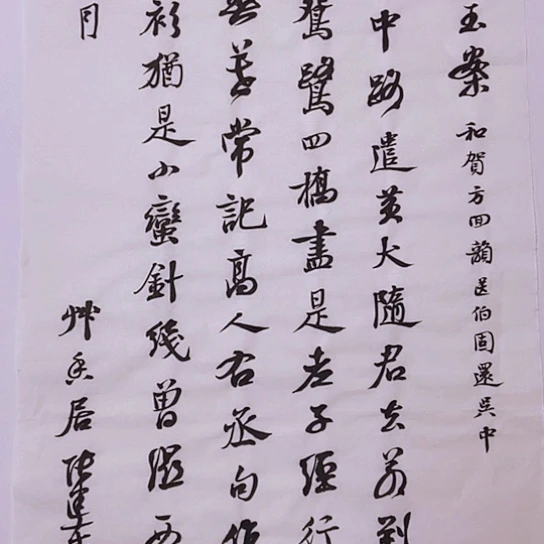 玉案 和賀方回韻送伯固還吳中
中路遣黃犬隨君去若到
鴛鷺四橋盡是老子經行
無著常記高人右丞句作
衫猶是小蠻針綫曾溼西
月
艸香居